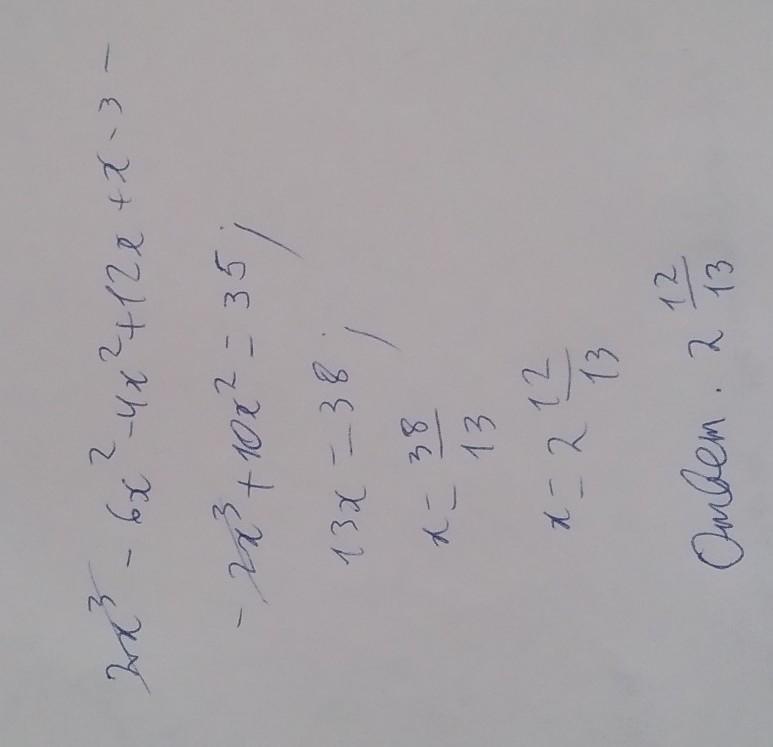 2x³ - 6x² - 4x² + 12x + x - 3 -
- 2x³ + 10x² = 35;
13x = 38;
x = 38/13
x = 2 12/13
Ответ. 2 12/13